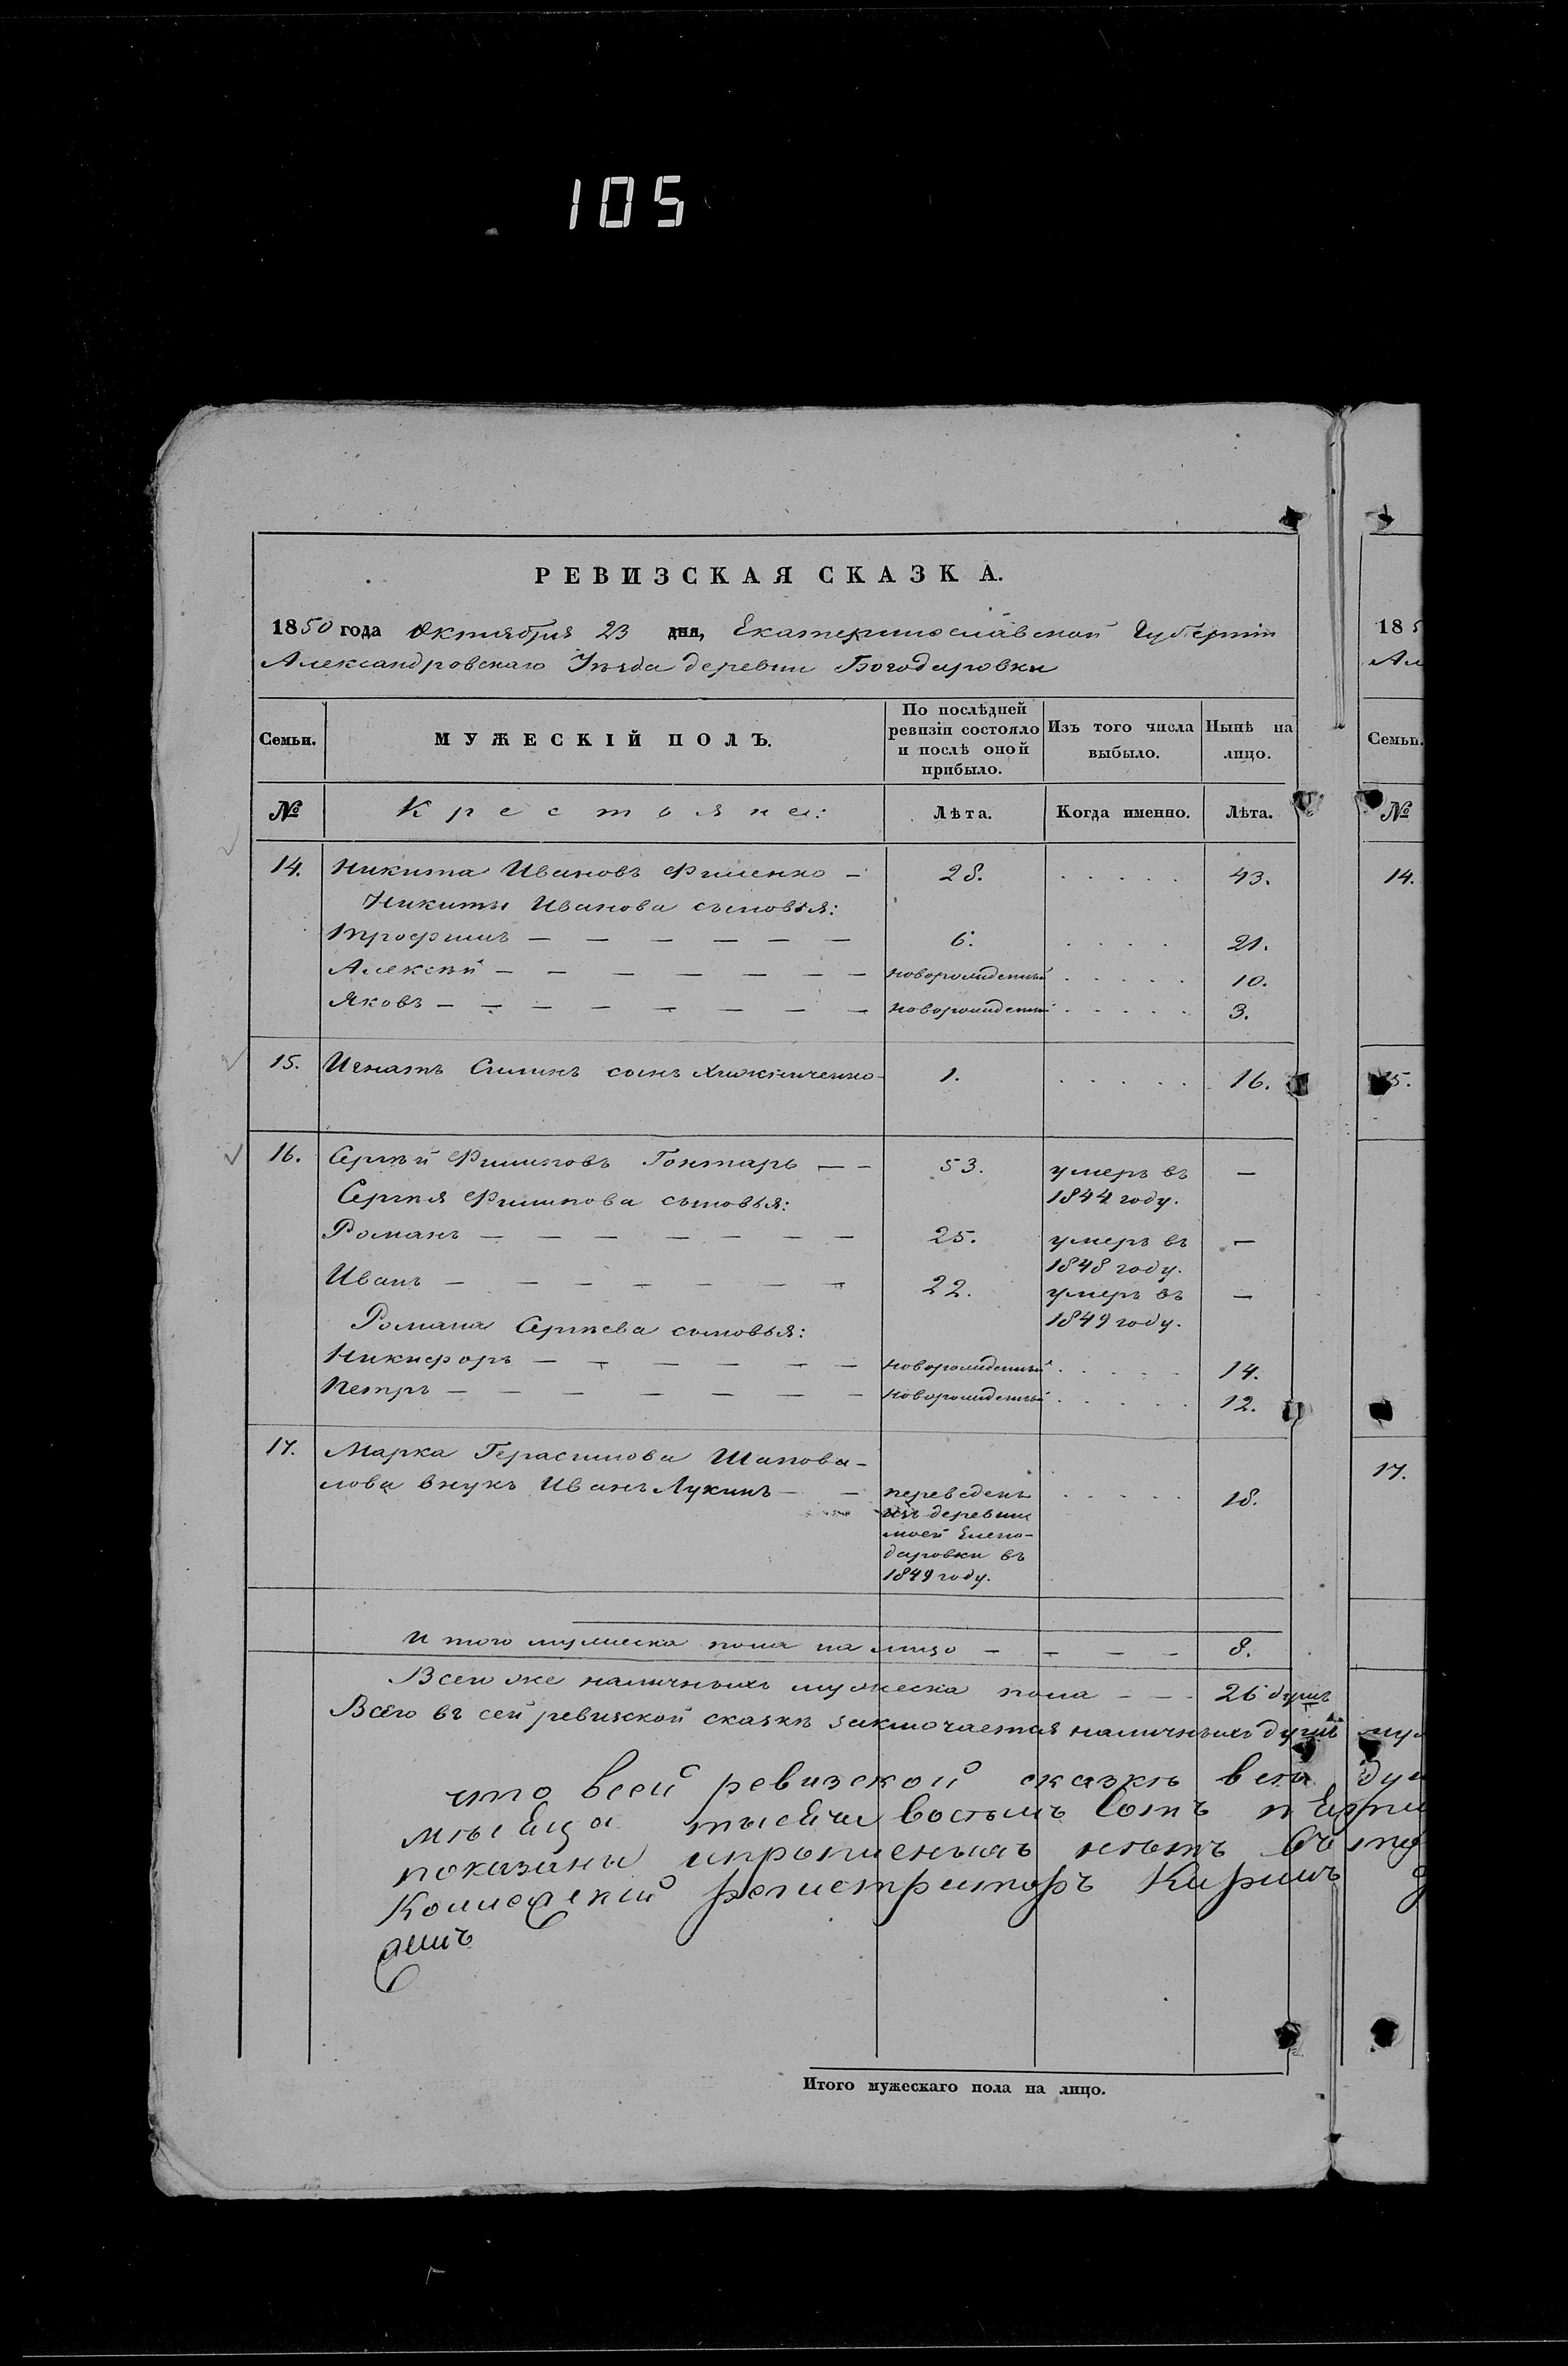 105
РЕВИЗСКАЯ СКАЗКА.
1850 года Октября 23 дня, Екатеринославской Губерніи
Александровскаго Уѣзда деревни Богодаровки
Семьи. МУЖЕСКІЙ ПОЛЪ. По послѣдней ревизіи состояло и послѣ оной прибыло. Изъ того числа выбыло. Нынѣ на лицо.
№ Крестьяне: Лѣта. Когда именно. Лѣта.
14. Никита Ивановъ Филенко — 28. . . . . . 43.
Никиты Иванова сыновья:
Трофимъ — — — — — — 6. . . . . 21.
Алексѣй — — — — — — — новорожденный . . . . . 10.
Яковъ — — — — — — — — новорожденный . . . . . 3.
15. Игнатъ Силинъ сынъ 1. . . . . . 16.
16. Сергѣй Филиповъ Гонтарь — — 53. умеръ въ —
Сергѣя Филипова сыновья: 1844 году.
Романъ — — — — — — — 25. умеръ въ —
1848 году.
Иванъ — — — — — — — 22. умеръ въ —
Романа Сергѣева сыновья: 1849 году.
Никифоръ — — — — — — новорожденный . . . . 14.
Петръ — — — — — — — новорожденный . . . . . 12.
17. Марка Герасимова Шапова-
лова внукъ Иванъ Лукинъ — — переведенъ . . . . . 18.
изъ деревни
моей Елено-
даровки въ
1849 году.
И того мужеска пола на лицо — — — — 8.
Всего же наличныхъ мужеска пола — — — 26 душъ
Всего въ сей ревизской сказкѣ заключается наличныхъ душъ
что всей ревизской сказкѣ всѣ
мѣсяца тысяча восемь сотъ
показаны и прописныхъ нѣтъ въ
Колежскій регистраторъ
Итого мужескаго пола на лицо.
185
Ал
Семьи.
№
14.
15.
17.